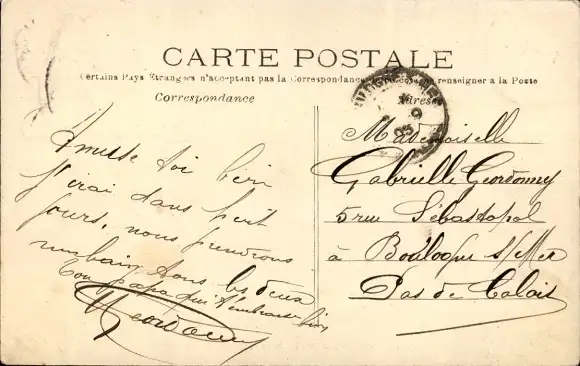 CARTE POSTALE
Certains Pays Étrangers n'acceptant pas la Correspondance, se renseigner à la Poste
Correspondance
Adresse
Amuse toi bien
J'irai dans huit
jours, nous prendrons
un bain tous les deux
Ton papa qui t'embrasse bien
Mademoiselle
Gabrielle Geordonney
5 rue Sébastopol
à Boulogne s/Mer
Pas de Calais